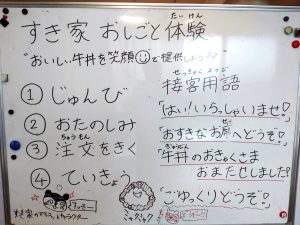 すき家 おしごと体験
たいけん
"おいしい牛丼を笑顔で提供しよう♡"
① じゅんび
② おたのしみ
③ 注文をきく
ちゅうもん
④ ていきょう
すき家のマスコットキャラクター
シャクシャク
せっきゃくようご
接客用語
「はい!いらっしゃいませ♡」
「おすきなお席へどうぞ!」
せき
ぎゅうどん
「牛丼のおきゃくさま
おまたせしました」
「ごゆっくりどうぞ!」